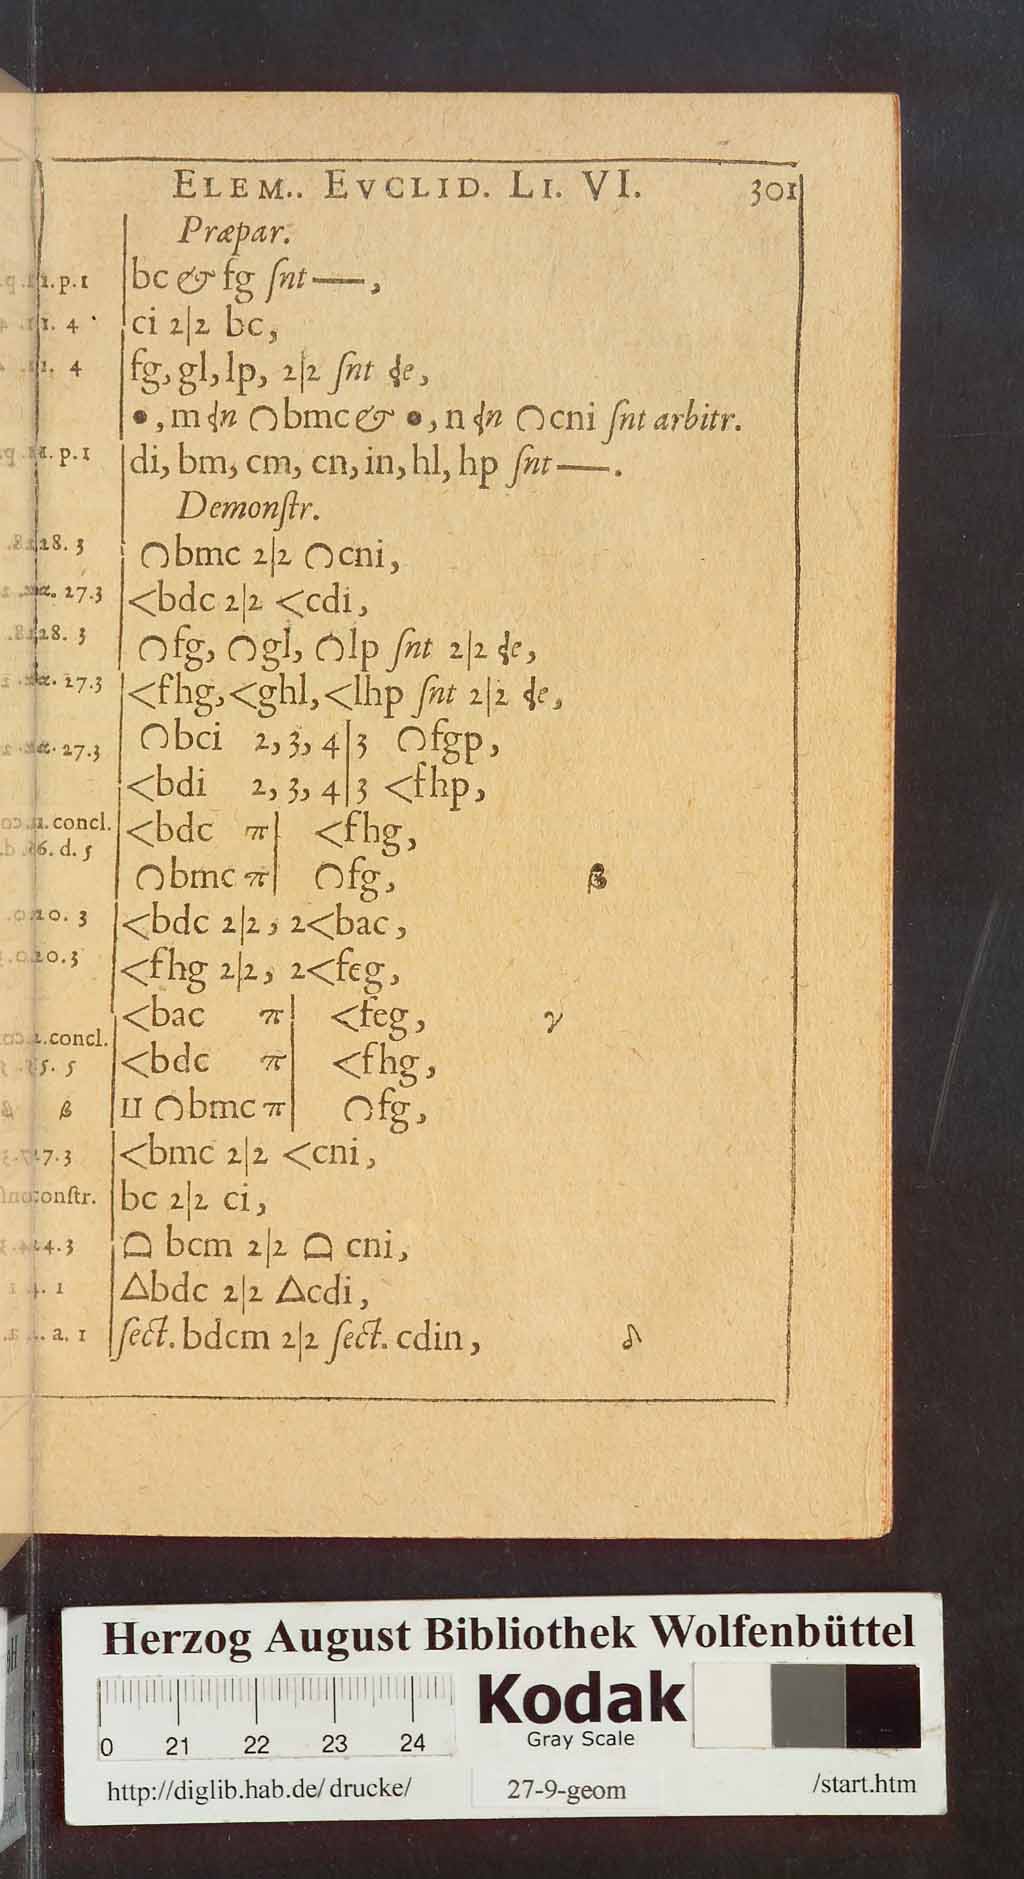 ELEM.. EVCLID. LI. VI. 301
Præpar.
1. p. 1 bc & fg ſnt —,
1. 4 ci 2|2 bc,
1. 4 fg, gl, lp, 2|2 ſnt
•, m ∩bmc & •, n ∩cni ſnt arbitr.
1. p. 1 di, bm, cm, cn, in, hl, hp ſnt —.
Demonſtr.
28. 3 ∩bmc 2|2 ∩cni,
27.3 <bdc 2|2 <cdi,
28. 3 ∩fg, ∩gl, ∩lp ſnt 2|2
27.3 <fhg, <ghl, <lhp ſnt 2|2
∩bci 2, 3, 4|3 ∩fgp,
27.3 <bdi 2, 3, 4|3 <fhp,
1. concl. <bdc π| <fhg,
6. d. 5
∩bmc π| ∩fg, β
20. 3 <bdc 2|2, 2<bac,
20.3 <fhg 2|2, 2<feg,
<bac π| <feg, γ
1. concl. <bdc π| <fhg,
15. 5
β ∩bmc π| ∩fg,
27.3 <bmc 2|2 <cni,
conſtr. bc 2|2 ci,
24.3 ⌓ bcm 2|2 ⌓ cni,
4. 1 △bdc 2|2 △cdi,
2. a. 1 ſect. bdcm 2|2 ſect. cdin, δ
Herzog August Bibliothek Wolfenbüttel
Kodak
Gray Scale
0 21 22 23 24
http://diglib.hab.de/ drucke/ 27-9-geom /start.htm